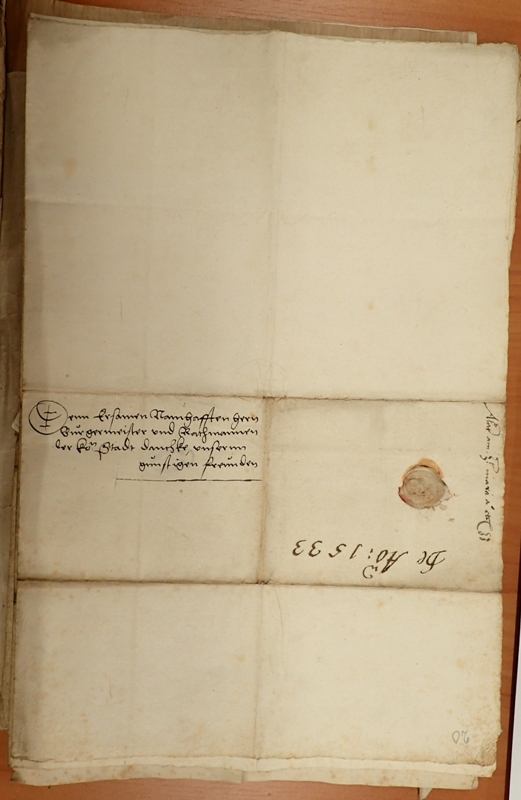 Denn Ersamen Namhafften hern
Burgermeister und Rathmannen
der koᵉ Stadt dantzke unserm
gunstigen freunden
De Aō: 1533
20